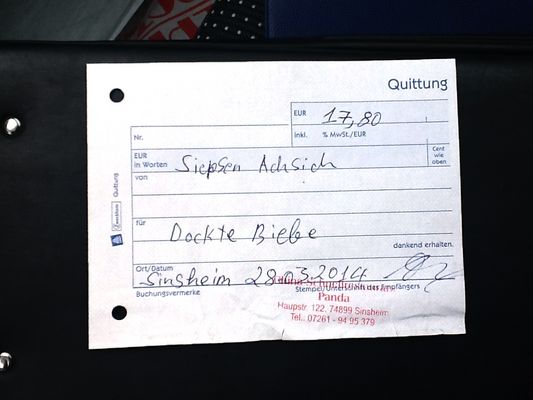 Quittung
EUR 17,80
Nr.
inkl. % MwSt./EUR
EUR in Worten Siepsen Achsich
Cent wie oben
von
für Dockte Biebe
dankend erhalten.
Ort/Datum
Sinsheim 28.03.2014
Buchungsvermerke
Stempel/Unterschrift des Empfängers
Panda
Haupstr. 122, 74899 Sinsheim
Tel.. 07261 - 94 95 379
Quittung